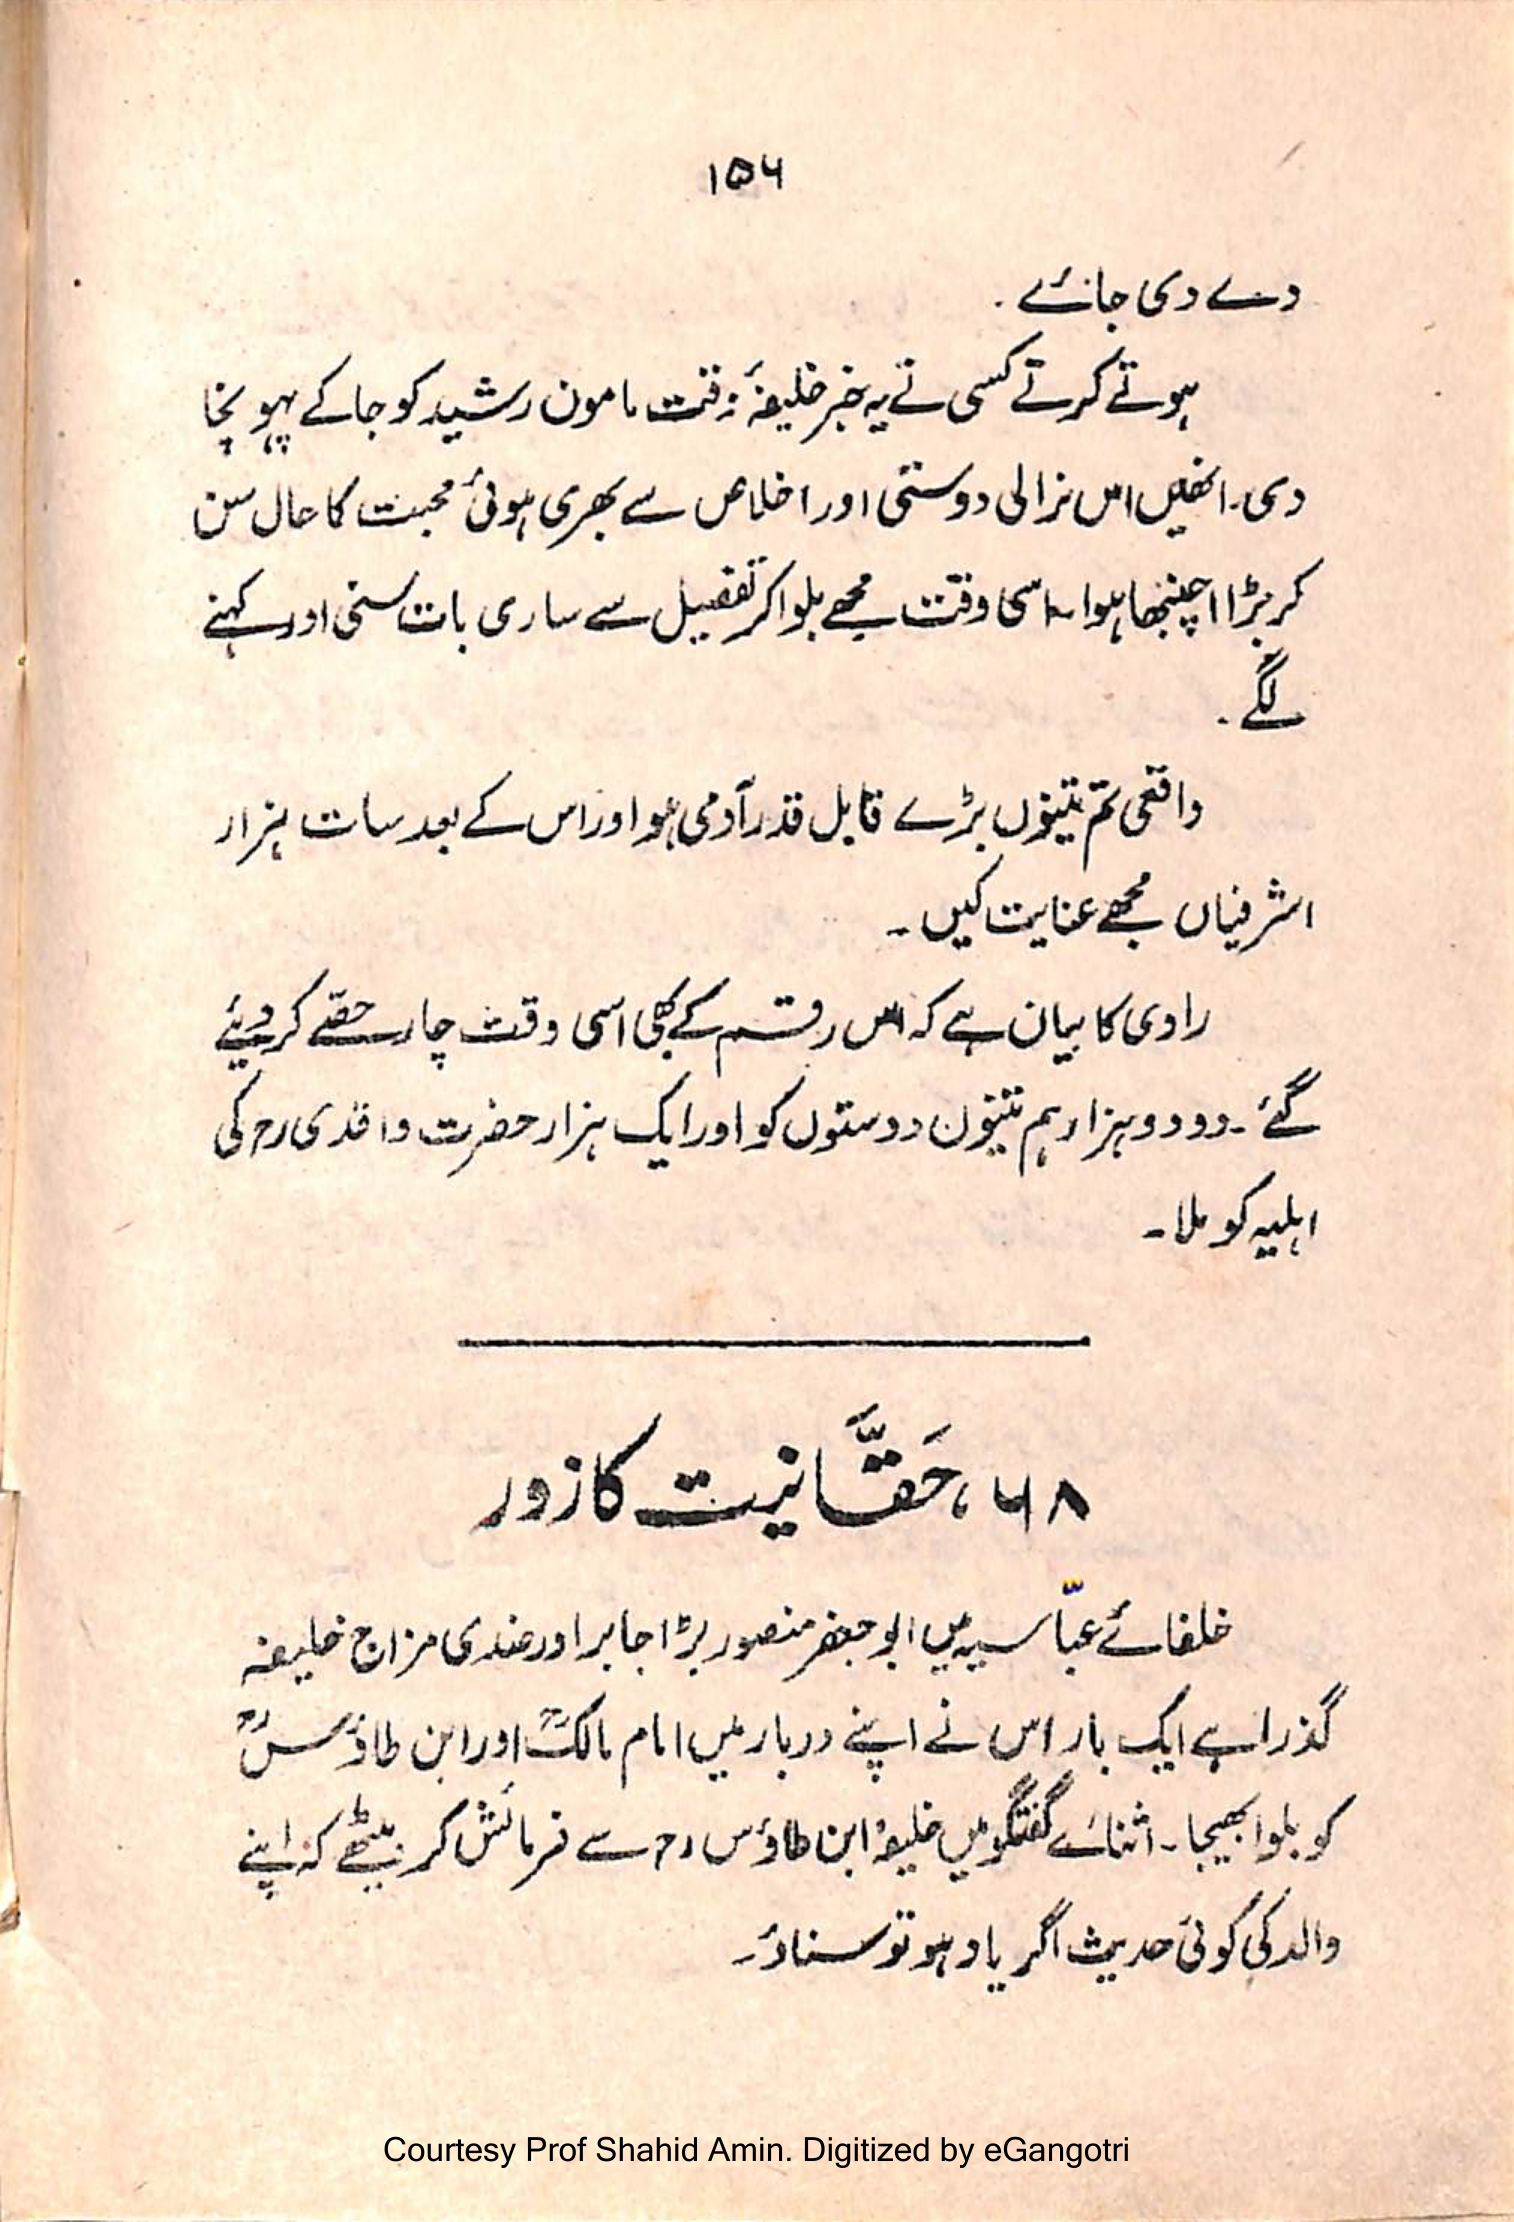 ۱۵۶
دے دی جائے .
ہوتے کرتے کسی نے یہ خبر خلیفۂ وقت مامون رشید کو جا کے پہونچا
دی۔ انھیں اس نرالی دوستی اور اخلاص سے بھری ہوئی محبت کا حال سن
کر بڑا اچنبھا ہوا۔ اسی وقت مجھے بلوا کر تفصیل سے ساری بات سنی اور کہنے
لگے .
واقعی تم تینوں بڑے قابل قدر آدمی ہو اور اس کے بعد سات ہزار
اشرفیاں مجھے عنایت کیں ۔
راوی کا بیان ہے کہ اس رقم کے بھی اسی وقت چار حصّے کر دیئے
گئے ۔ دو دو ہزار ہم تینوں دوستوں کو اور ایک ہزار حضرت واقدی رح کی
اہلیہ کو ملا ۔
۶۸ ، حَقَّانیت کا زور
خلفائے عبّاسیہ میں ابو جعفر منصور بڑا جابر اور ضدی مزاج خلیفہ
گذرا ہے ایک بار اس نے اپنے دربار میں امام مالکؒ اور ابن طاؤسؒ
کو بلوا بھیجا ۔ اثنائے گفتگو میں خلیفہ ابن طاؤس رح سے فرمائش کر بیٹھے کہ اپنے
والد کی کوئی حدیث اگر یاد ہو تو سناؤ ۔
Courtesy Prof Shahid Amin. Digitized by eGangotri